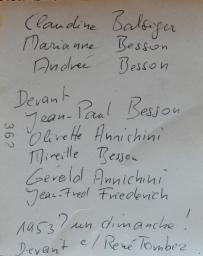 Claudine Balsiger
Marianne Besson
Andrée Besson
Devant
Jean-Paul Besson
Olivette Annichini
Mireille Besson
Gérald Annichini
Jean-Fred Friederich
1953? un dimanche!
Devant c/ René Tombez
362